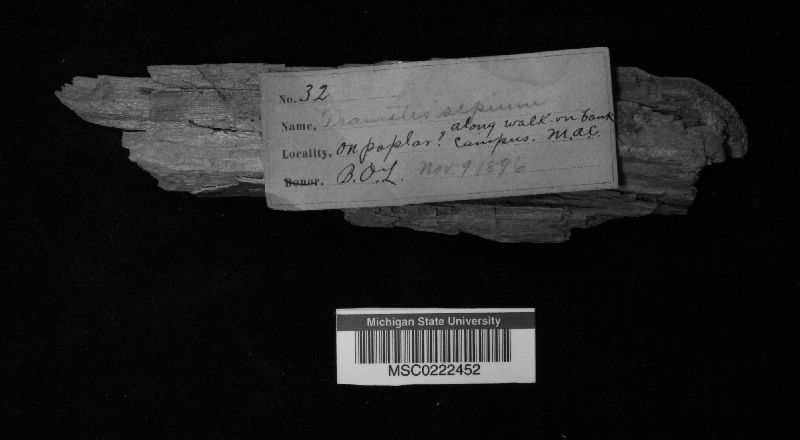 No. 32
Name, Trametes sepium
Locality, on poplar? along walk on bank
campus. M.A.C.
Donor. B.O.L. Nov. 9 1896
Michigan State University
MSC0222452